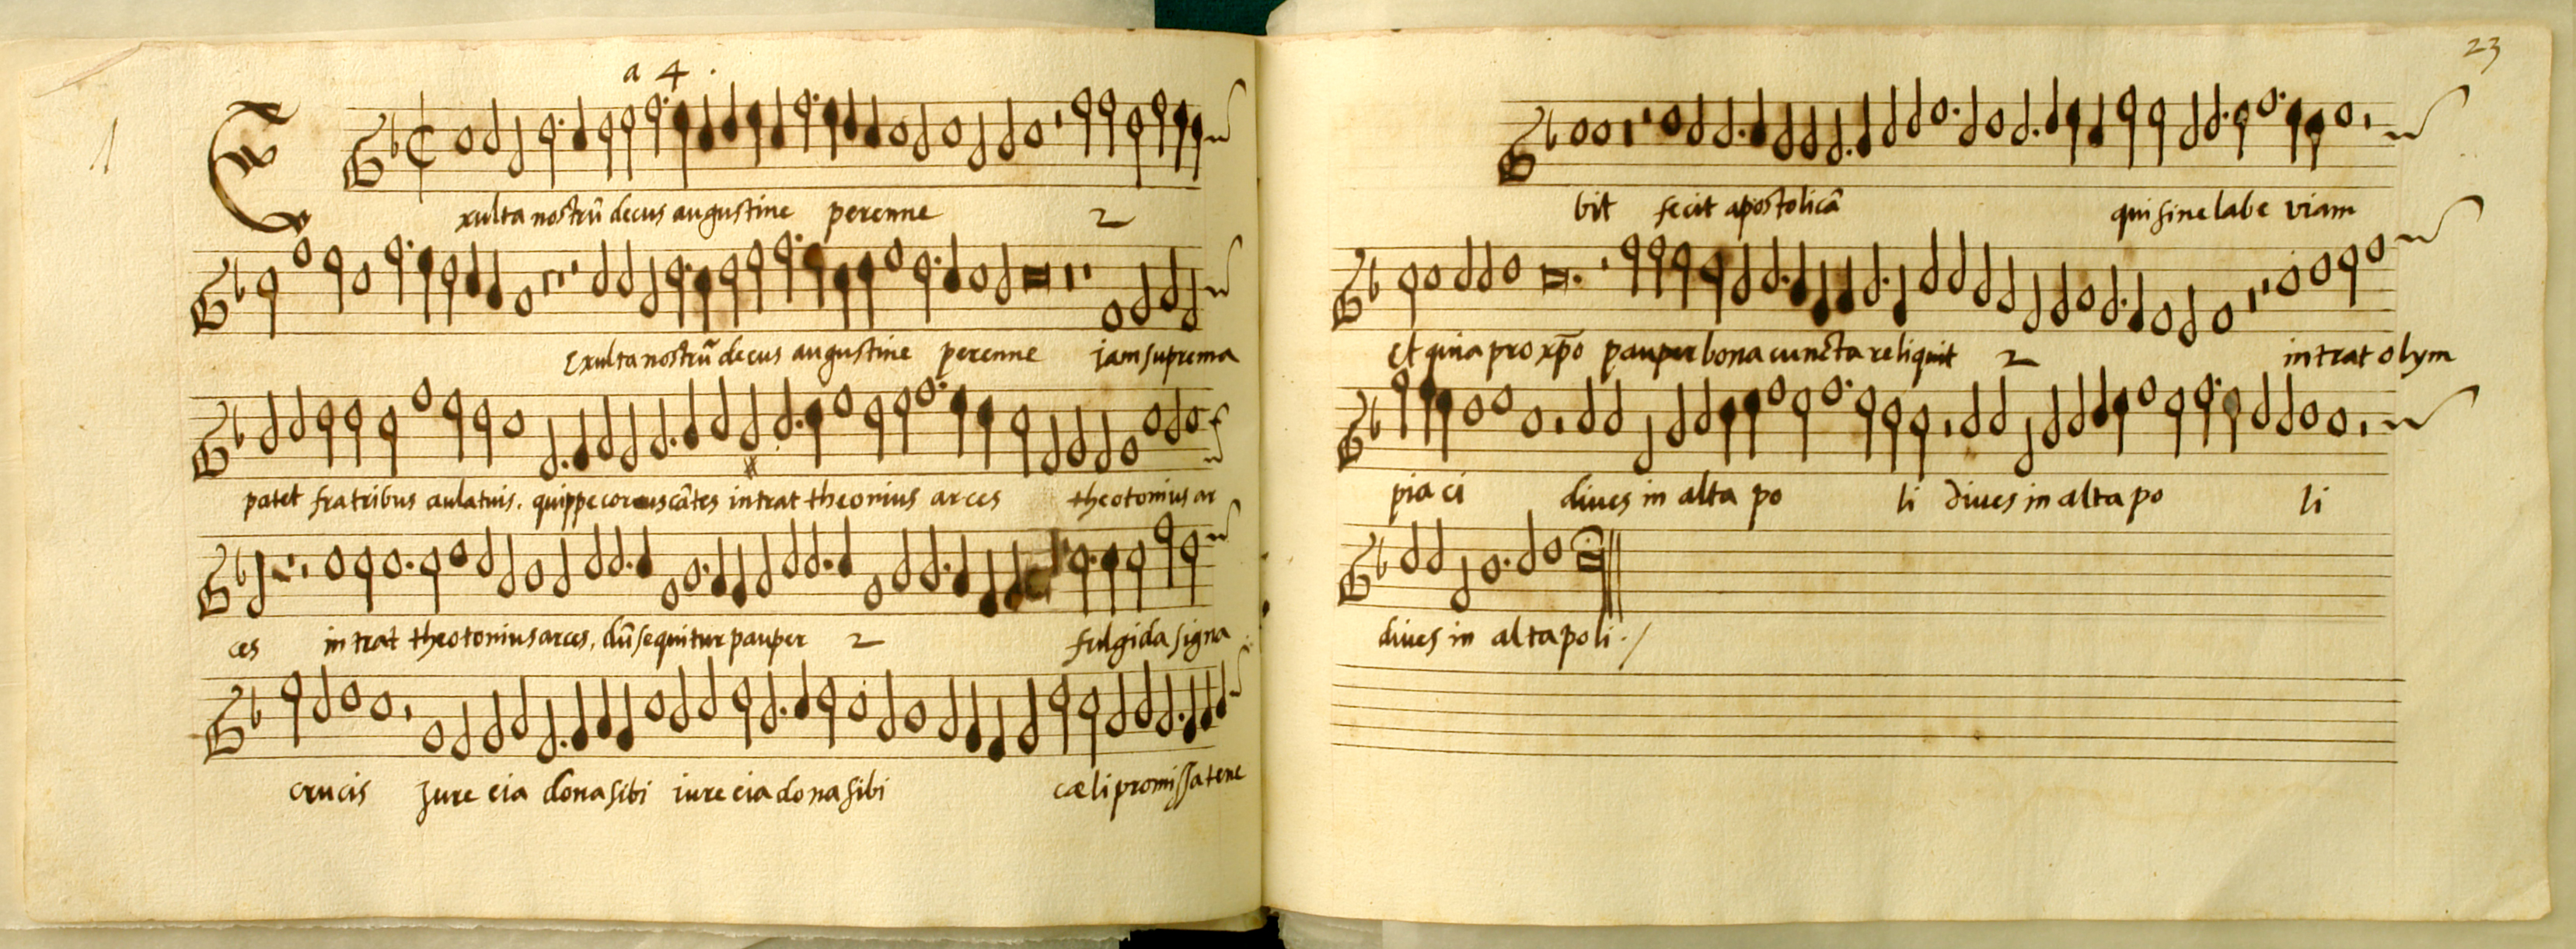 a 4.
Exulta nostrū decus augustine perenne 2
Exulta nostrū decus augustine perenne iam suprema
patet fratribus aula tuis. quippe coruscātes intrat theonius arces theotonius ar
ces intrat theotonius arces, dū sequitur pauper 2 fulgida signa
crucis Iure eia dona sibi iure eia dona sibi cæli promissa tene
23
bit fecit apostolicā qui sine labe viam
Et quia pro xp̄o pauper bona cuncta reliquit 2 intrat olym
pia ci diues in alta po li diues in alta po li
diues in alta poli ./